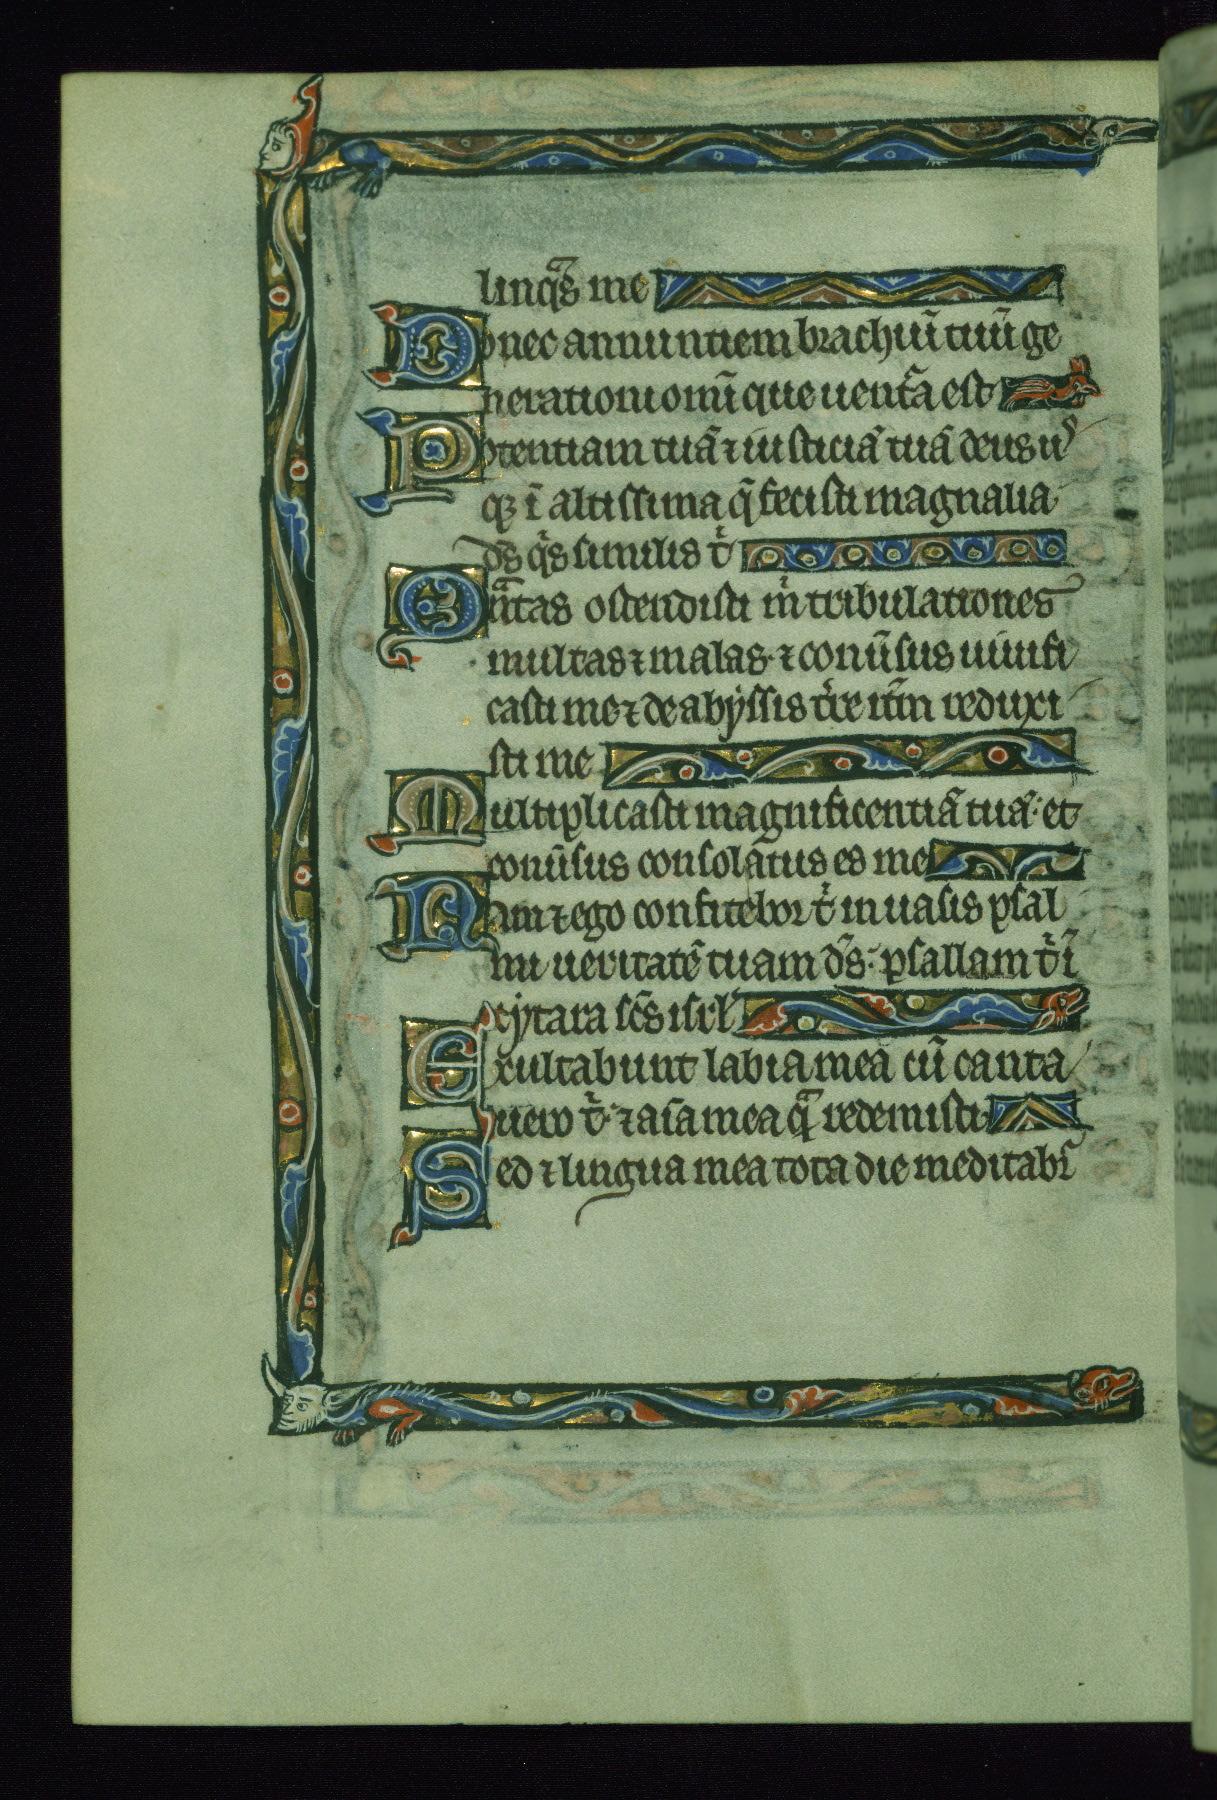 linqͣs me
Donec annuntiem brachiū tuū ge
nerationi omī que uentᷓa est
Potentiam tuā ⁊ iusticiā tuā deus us
qꝫ ī altissima q̄ fecisti magnalia
ds̄ qͥs similis tͥ
Qͣntas ostendisti m̍ tribulationes
multas ⁊ malas· ⁊ conūsus uiuifi
casti me ⁊ de abyssis t̄re it̄m reduxi
sti me
Multiplicasti magnificentiā tuā· et
conūsus consolatus es me
Nam ⁊ ego confitebor tͥ in uasis psal
mi ueritatē tuam ds̄· psallam tͥ ī
cytara sc̄s isrl̄
Exultabunt labia mea cū canta
uero tͥ· ⁊ aīa mea qͣ redemisti
Sed ⁊ lingua mea tota die meditabī